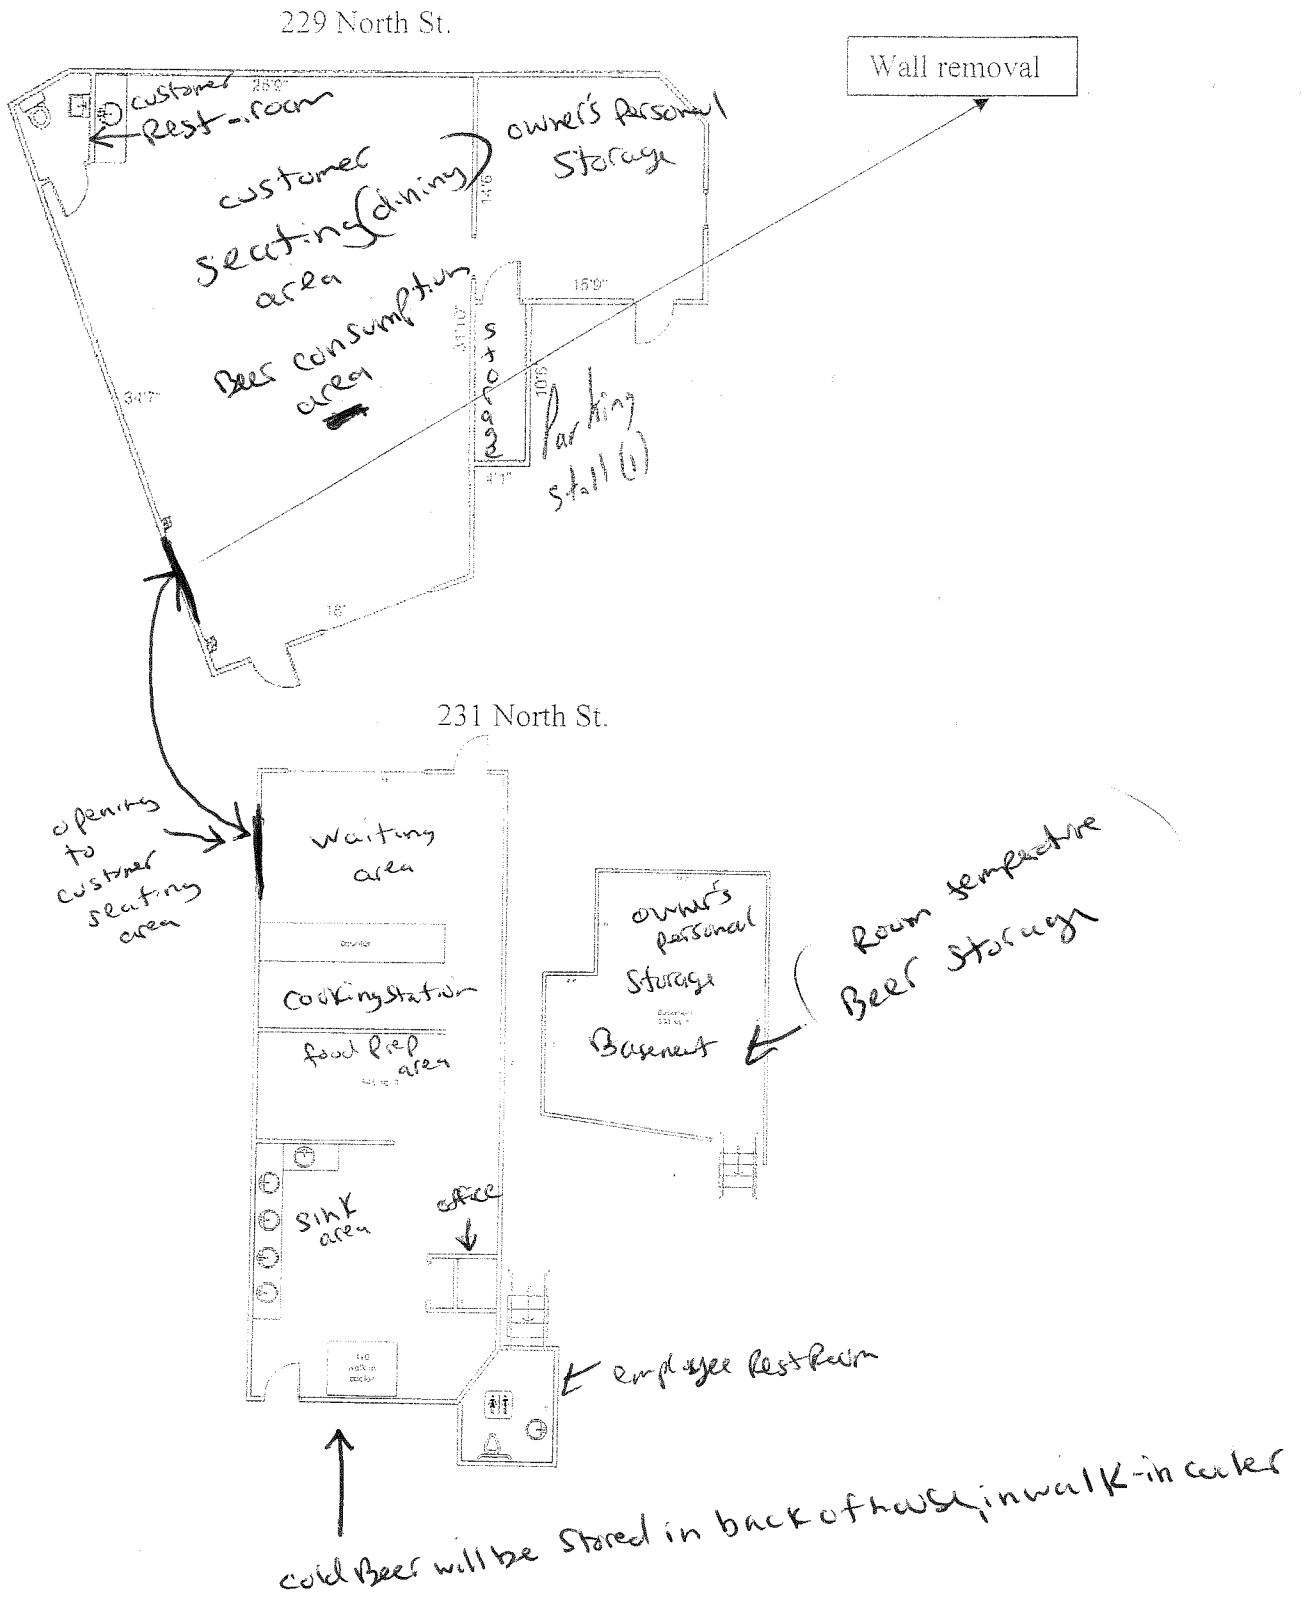 229 North St.
Wall removal
customer
Rest-room
26'9"
owner's personal
Storage
customer
seating (dining)
area
14'6"
15'9"
Beer consumption
area
31'10"
storage
10'6"
Parking
stall (1)
4'7"
34'7"
16'
231 North St.
opening
to
customer
seating
area
waiting
area
counter
cooking station
food prep
area
owner's
personal
Storage
Basement
Basement
Room temperature
Beer Storage
sink
area
office
walk in
cooler
employee RestRoom
cold Beer will be stored in back of house, in walk-in cooler